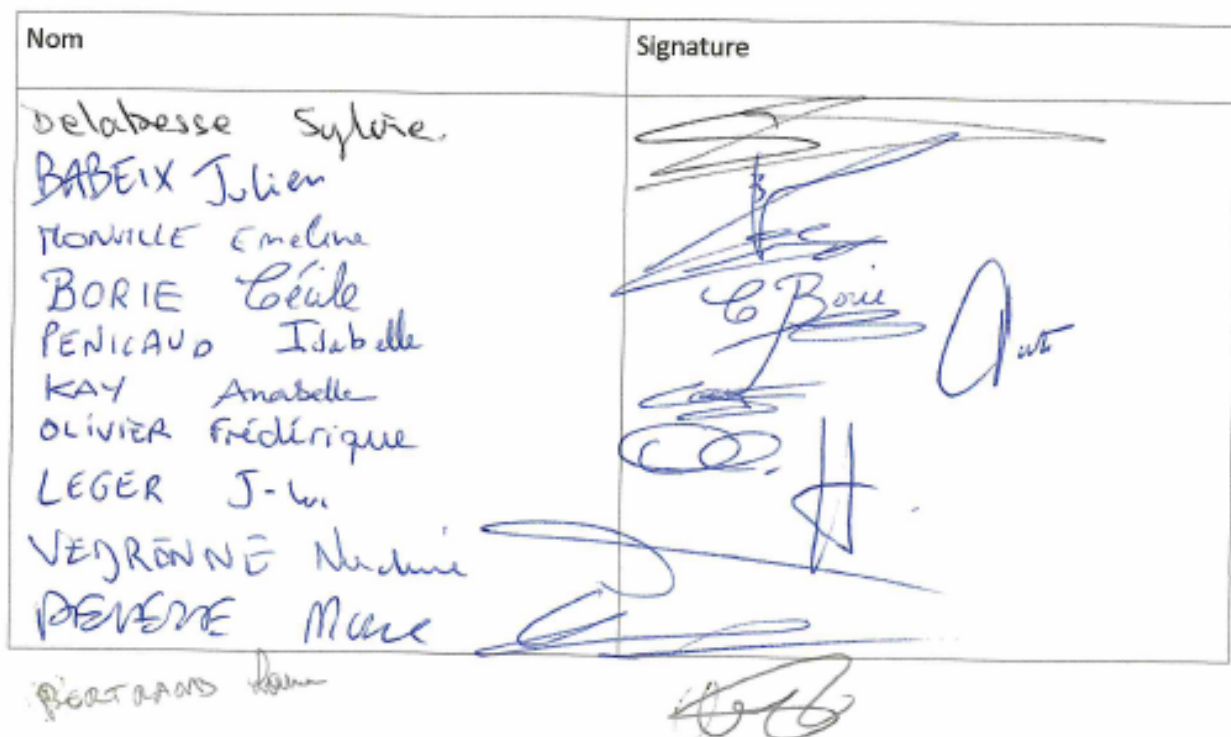 Nom Signature
Delabesse Sylvie.
BABEIX Julien
MONVILLE Emeline
BORIE Cécile C Borie
PENICAUD Isabelle
KAY Anabelle
OLIVIER Frédérique
LEGER J-
VEYRENNE
Marc
BERTRAND